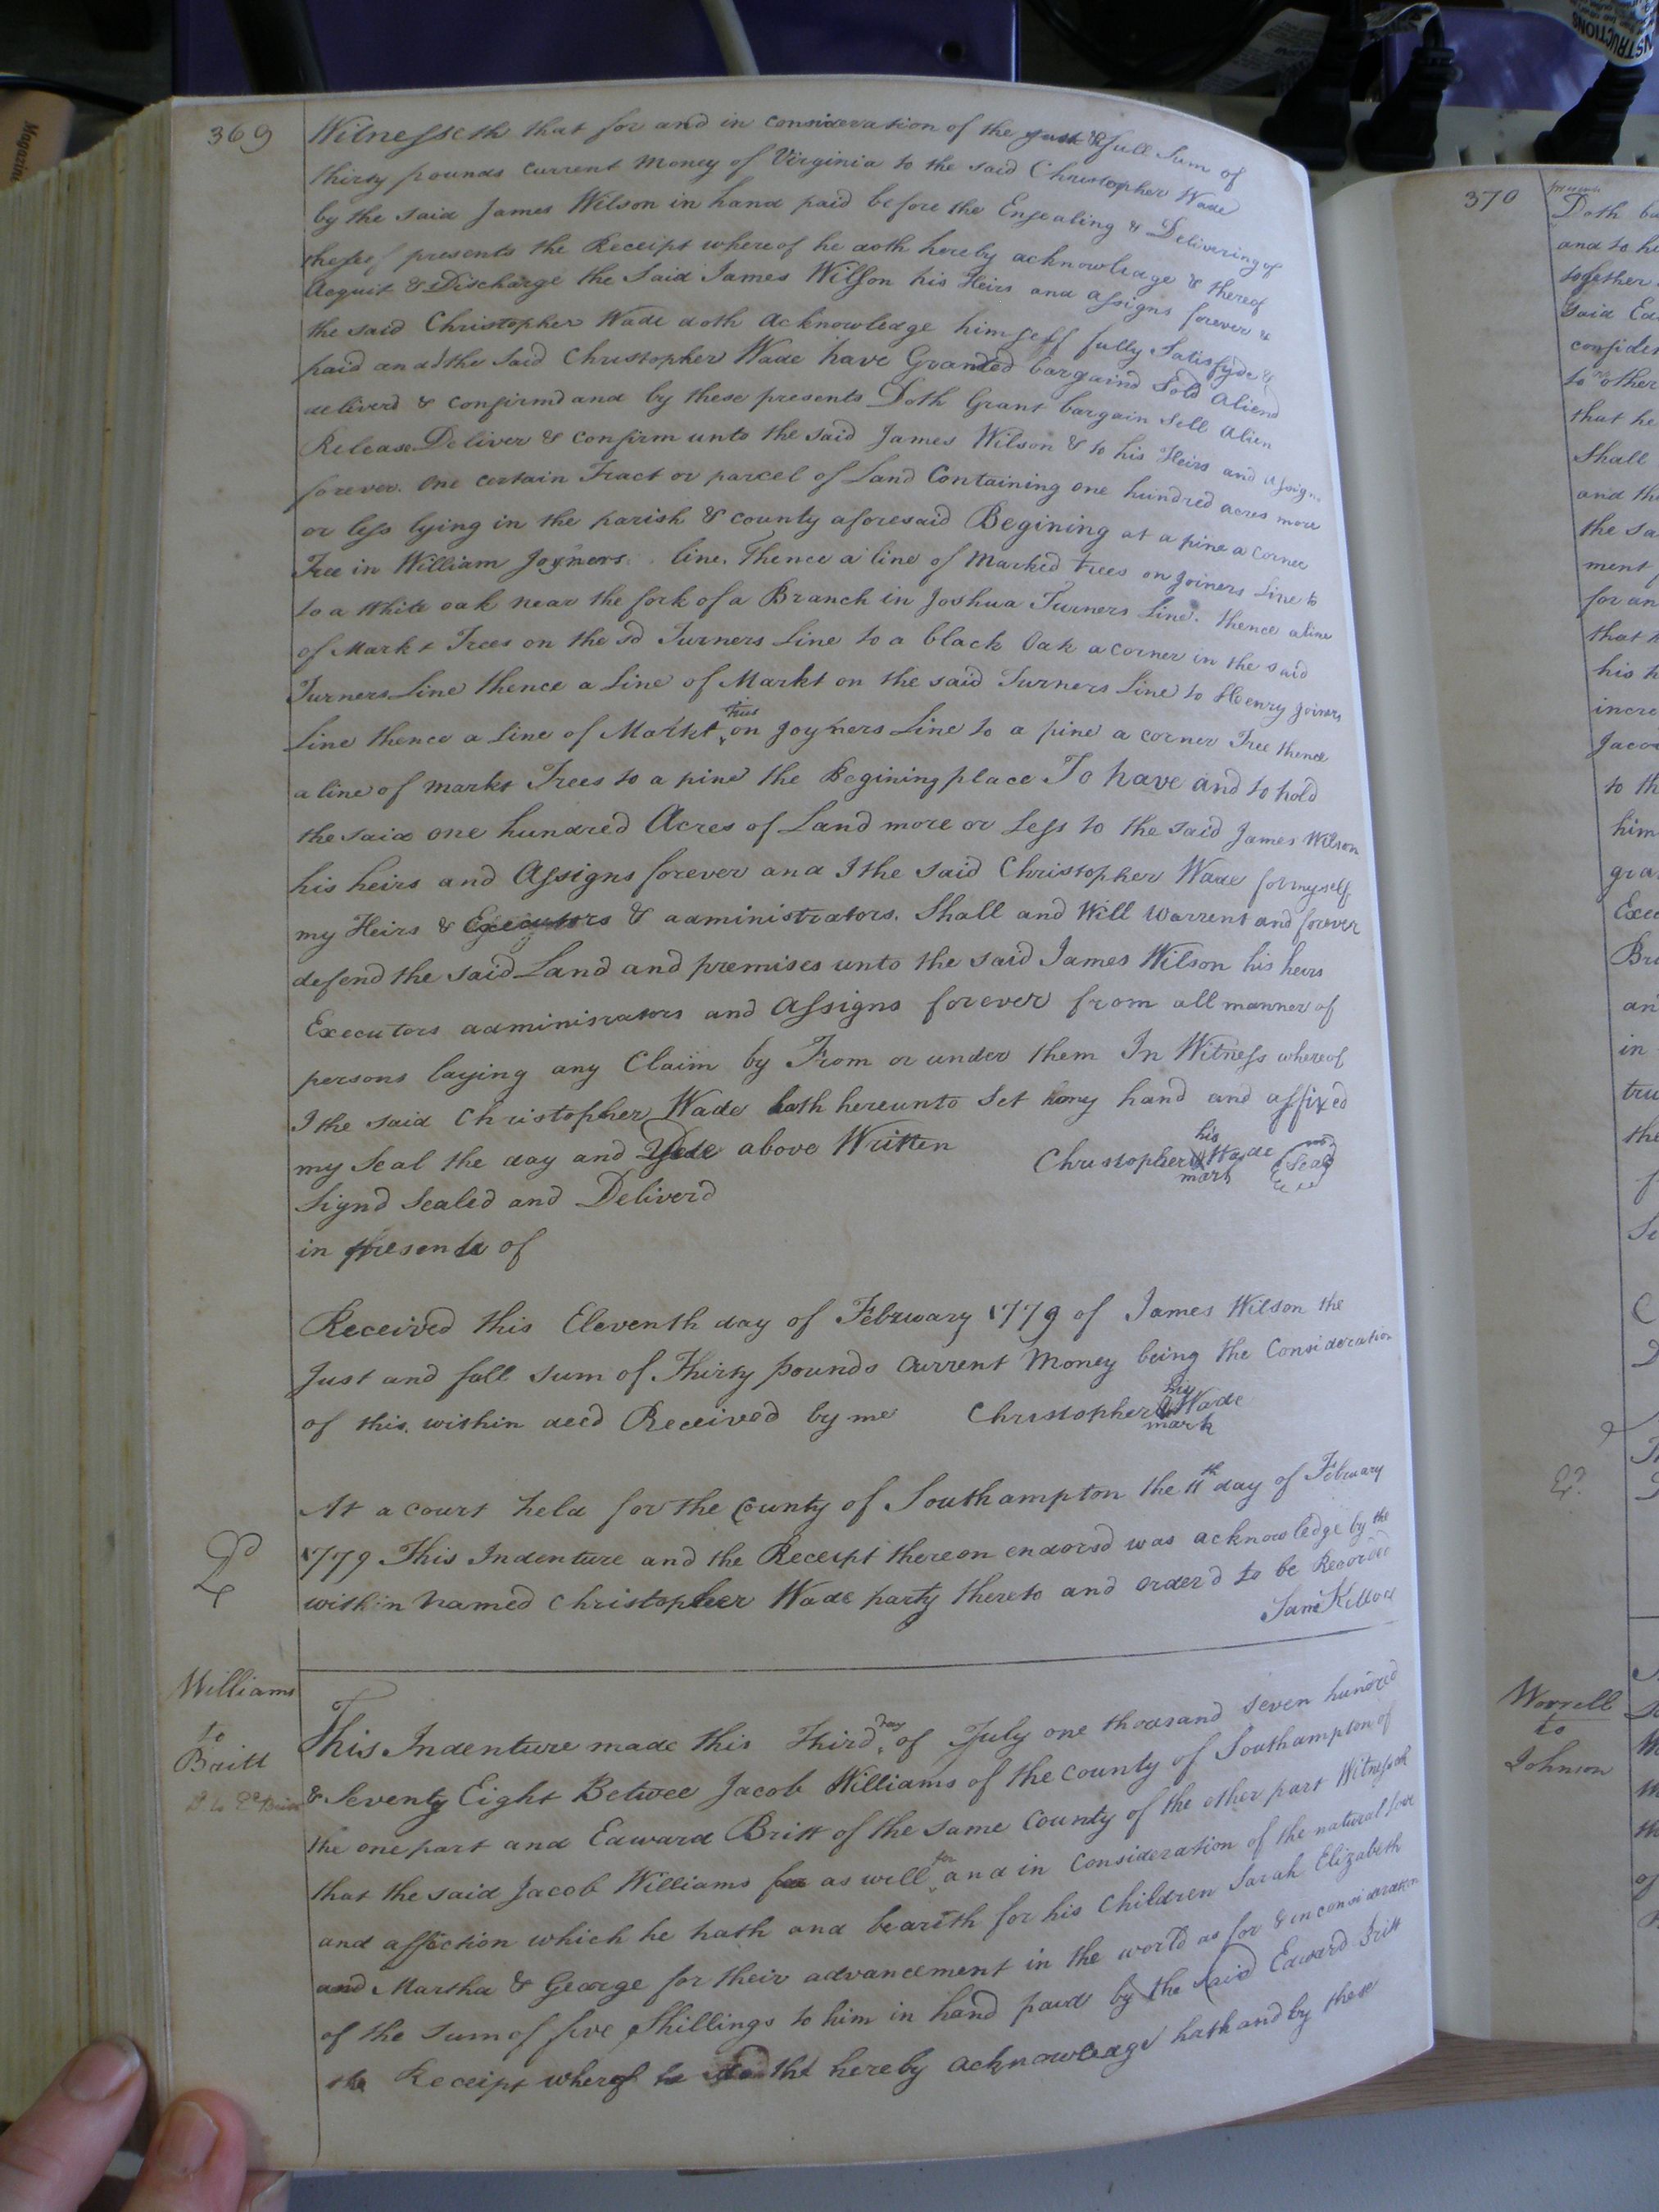 369
Witnesseth that for and in consideration of the just & full Sum of
thirty pounds current Money of Virginia to the said Christopher Wade
by the said James Wilson in hand paid before the Ensealing & Delivering of
these presents the Receipt whereof he doth hereby acknowledge & thereof
Acquit & Discharge the Said James Wilson his Heirs and assigns forever &
the said Christopher Wade doth Acknowledge himself fully Satisfyde &
paid and the Said Christopher Wade have Granted bargaind Sold Aliend
deliverd & confirmd and by these presents Doth Grant bargain Sell Alien
Release Deliver & confirm unto the said James Wilson & to his Heirs and Assigns
forever. One certain Tract or parcel of Land Containing one hundred acres more
or less lying in the parish & county aforesaid Begining at a pine a corner
Tree in William Joyners line. Thence a line of Marked trees on Joiners Line to
to a White oak near the fork of a Branch in Joshua Turners Line. thence a line
of Markt Trees on the sd Turners Line to a black Oak a corner in the said
Turners Line thence a Line of Markt on the said Turners Line to Henry Joiners
Line thence a Line of Markt trees on Joyners Line to a pine a corner Tree thence
a line of markt Trees to a pine the Begining place To have and to hold
the said one hundred Acres of Land more or Less to the said James Wilson
his heirs and Assigns forever and I the said Christopher Wade for myself
my Heirs & Executors & administrators. Shall and Will Warrent and forever
defend the said Land and premises unto the said James Wilson his heirs
Executors administrators and Assigns forever from all manner of
persons laying any Claim by From or under them In Witness whereof
I the said Christopher Wade hath hereunto Set my hand and affixed
my Seal the day and Year above Written Christopher his mark Wade Seal
Signd Sealed and Deliverd
in presents of
Received this Eleventh day of February 1779 of James Wilson the
Just and full sum of Thirty pounds Current Money being the Consideration
of this within deed Received by me Christopher his mark Wade
At a court held for the County of Southampton the 11th day of February
1779 This Indenture and the Receipt thereon endorsd was acknowledge by the
within Named Christopher Wade party thereto and order'd to be Recorded
Williams
to
Britt
This Indenture made this Third day of July one thousand Seven hundred
& Seventy Eight Betwee Jacob Williams of the County of Southampton of
the one part and Edward Britt of the same County of the other part Witnesseth
that the said Jacob Williams as well for and in Consideration of the natural love
and affection which he hath and beareth for his Children Sarah Elizabeth
and Martha & George for their advancement in the world as for & in consideration
of the Sum of five Shillings to him in hand paid by the said Edward Britt
the Receipt whereof he doth hereby acknowledge hath and by these
370
Doth
and to
together
Said
to other
that he
Shall
and
the
ment
for an
that
his
to th
him
in
Worrell
to
Johnson